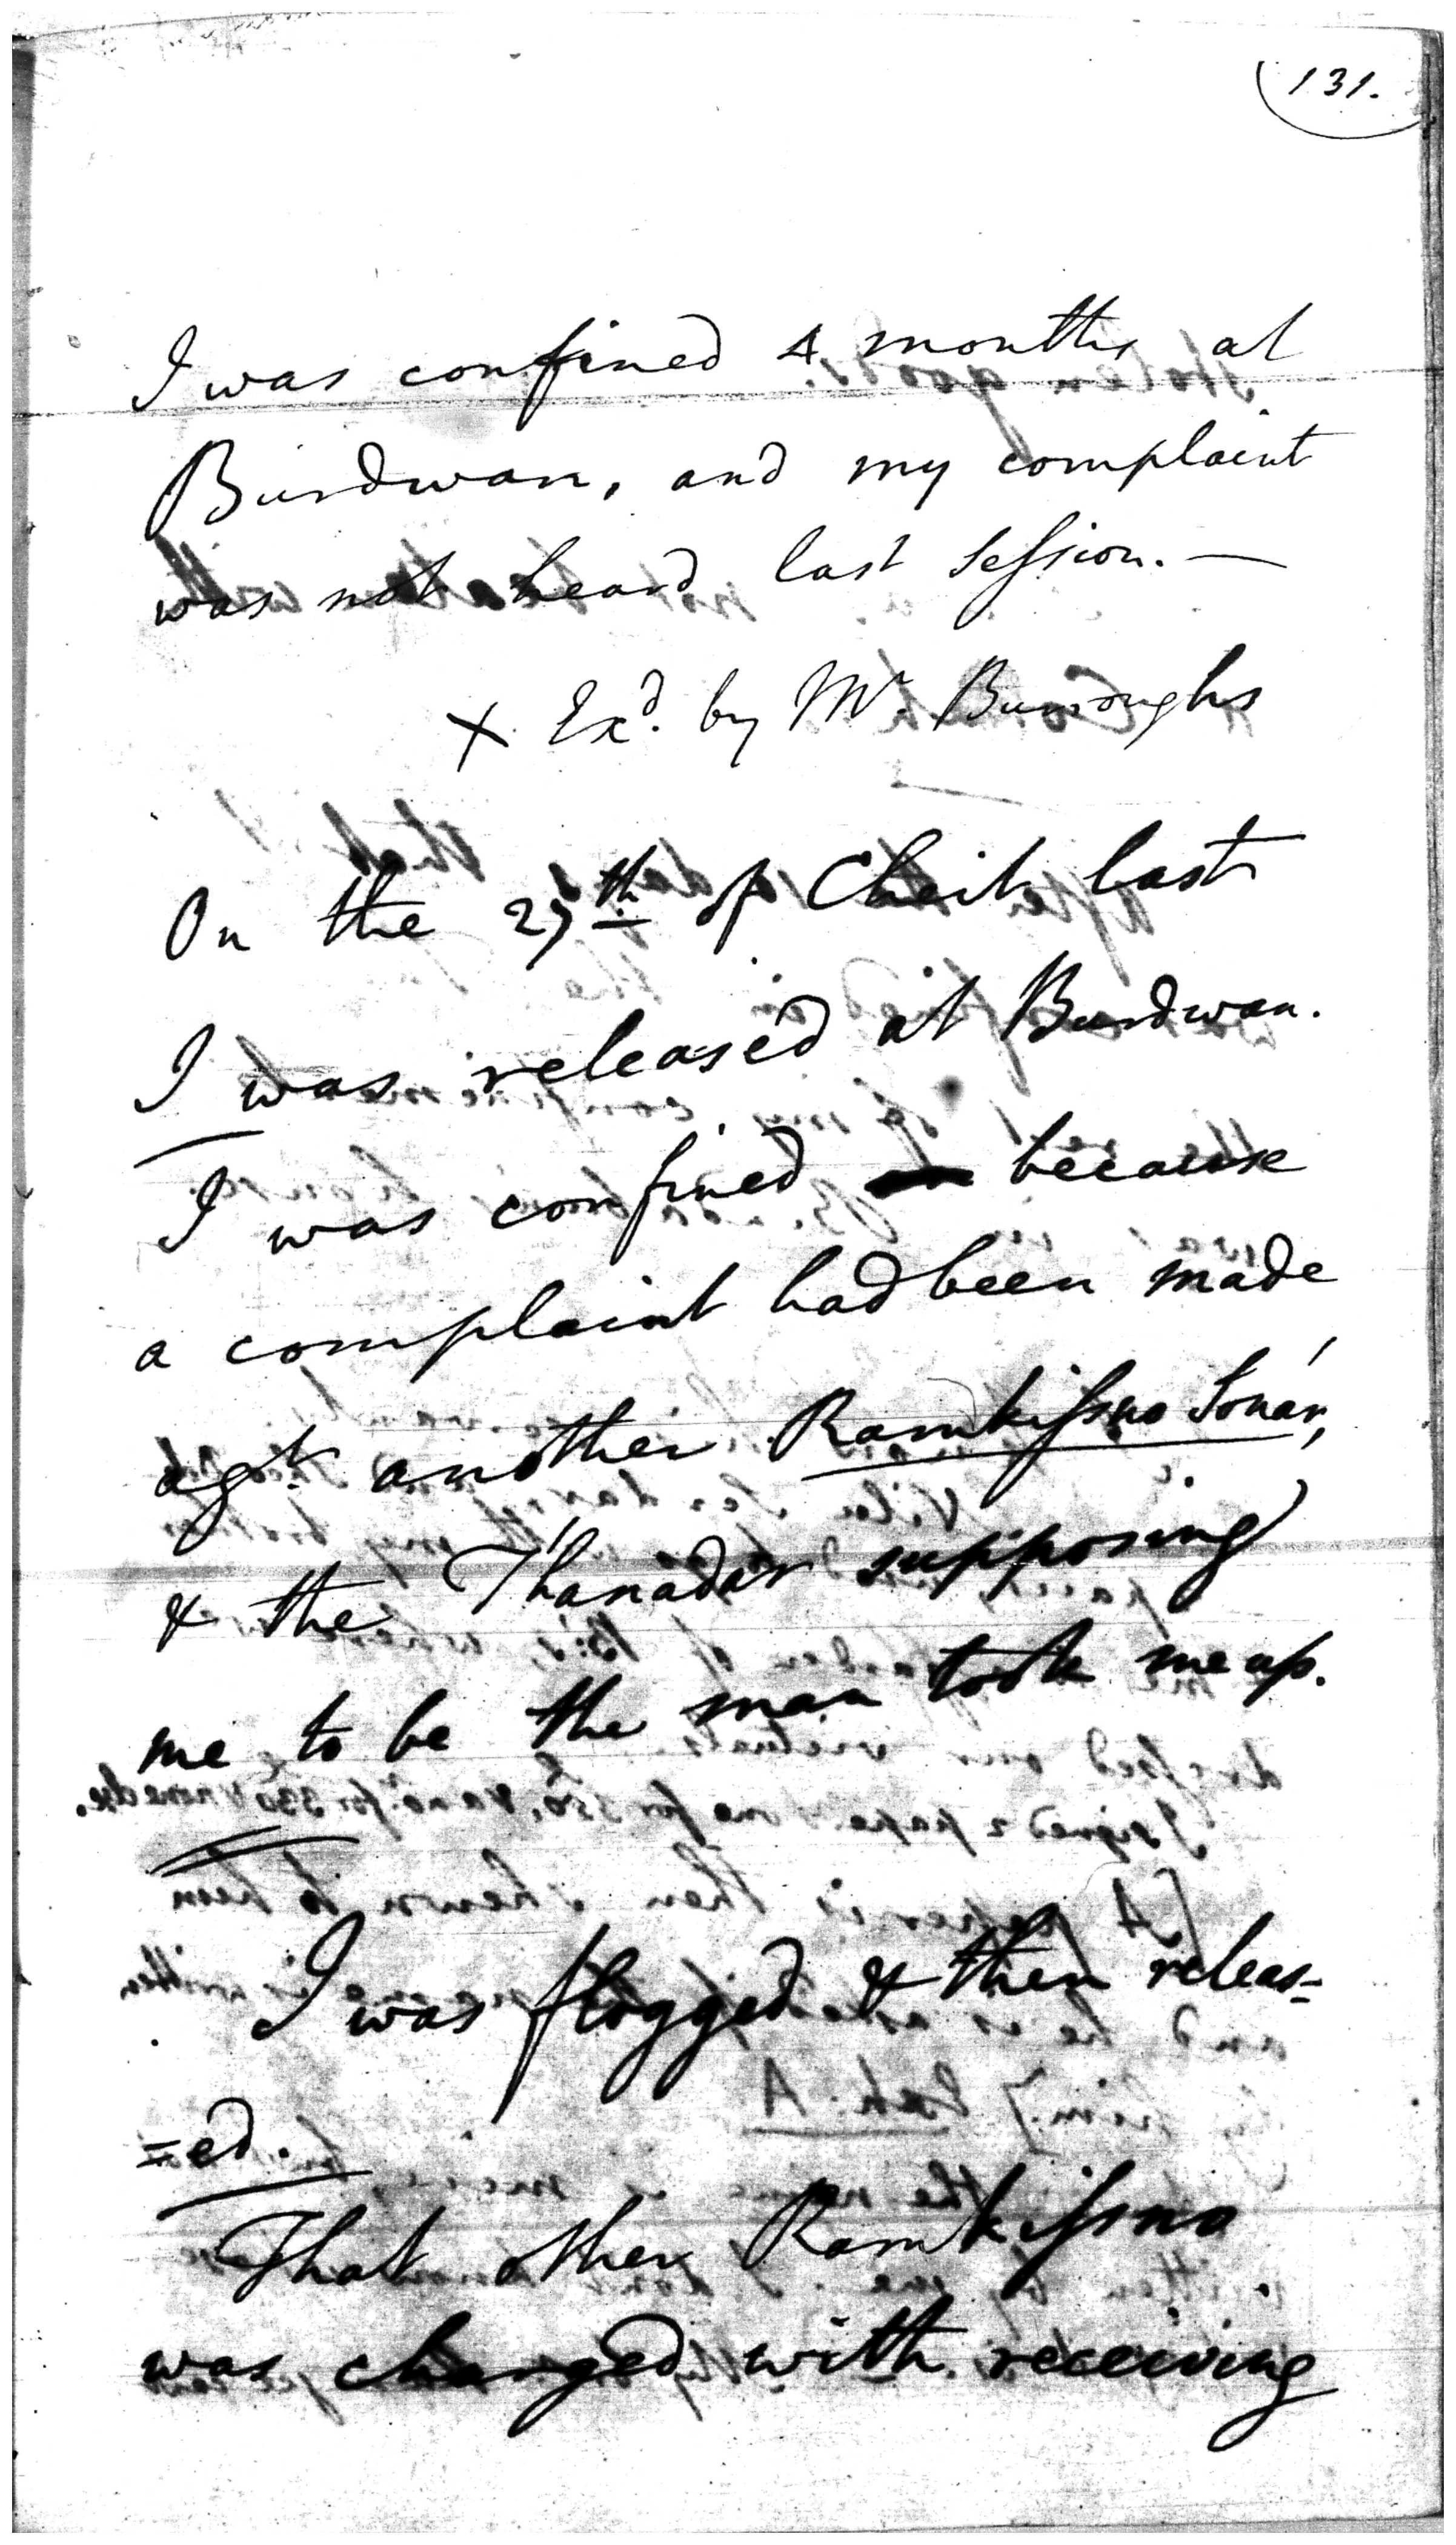 131.
I was confined 4 months at
Burdwan, and my complaint
was not heard last Session. —
X Exd. by Mr. Burroughs
On the 29th of Cheit last
I was released at Burdwan.
I was confined because
a complaint had been made
agt. another Ramkissno Sonár,
& the Thanadar supposing
me to be the man took me up.
I was flogged & then releas=
=ed.
That other Ramkissno
was charged with receiving